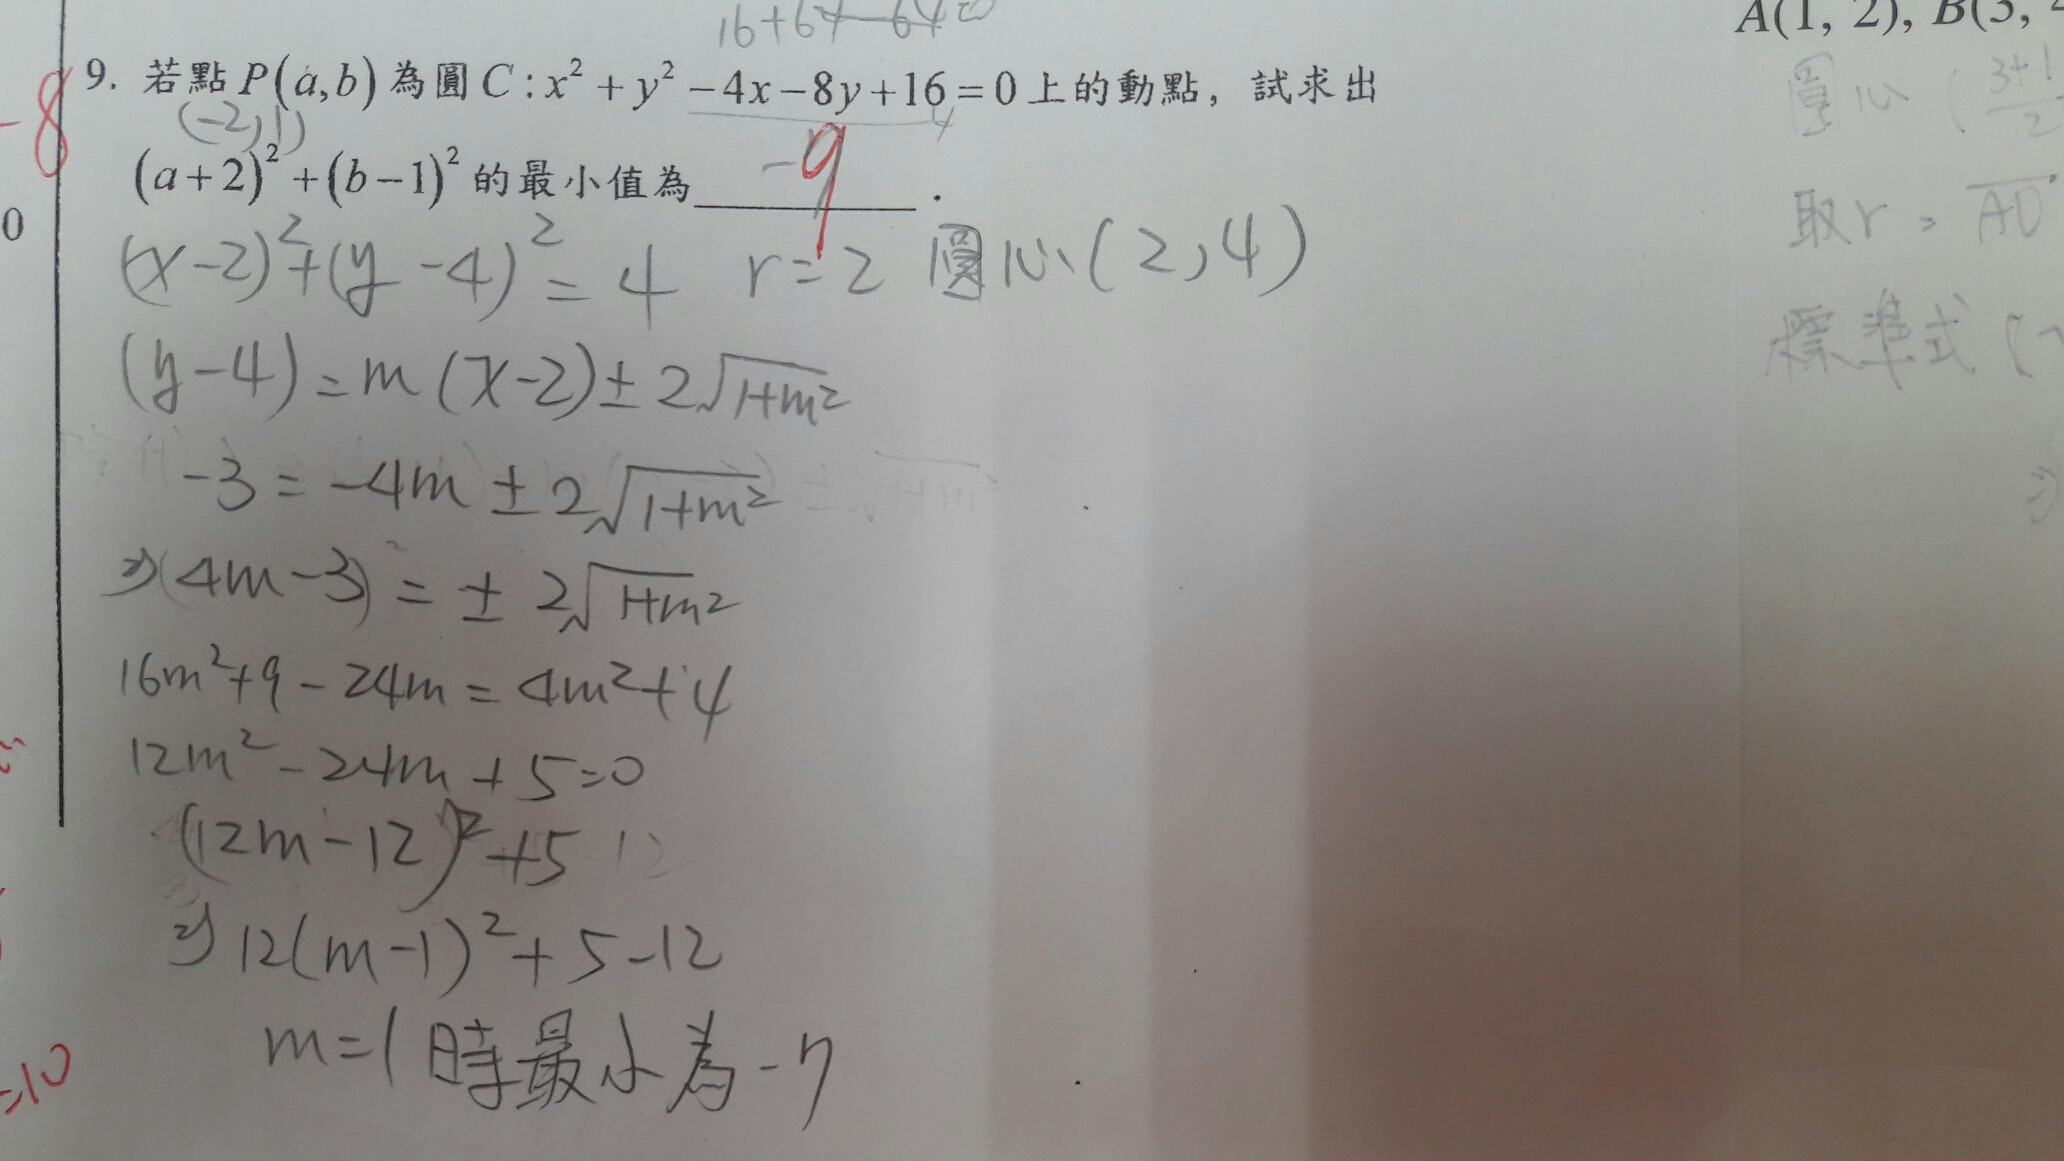 16+64-64=0
A(1, 2), B(3,
-8
9. 若點 P(a,b) 為圓 C : x² + y² - 4x - 8y + 16 = 0 上的動點，試求出
(-2,1)
4
(a+2)² + (b-1)² 的最小值為 9 .
0
(x-2)²+(y-4)²=4 r=2 圓心(2,4)
(y-4)=m(x-2)±2√1+m²
-3=-4m±2√1+m²
⇒(4m-3)=±2√1+m²
16m²+9-24m=4m²+4
12m²-24m+5=0
(12m-12)²+5 12
⇒12(m-1)²+5-12
m=1時最小為-7
=10
圓心 (3+1/2
取r=
標準式 (